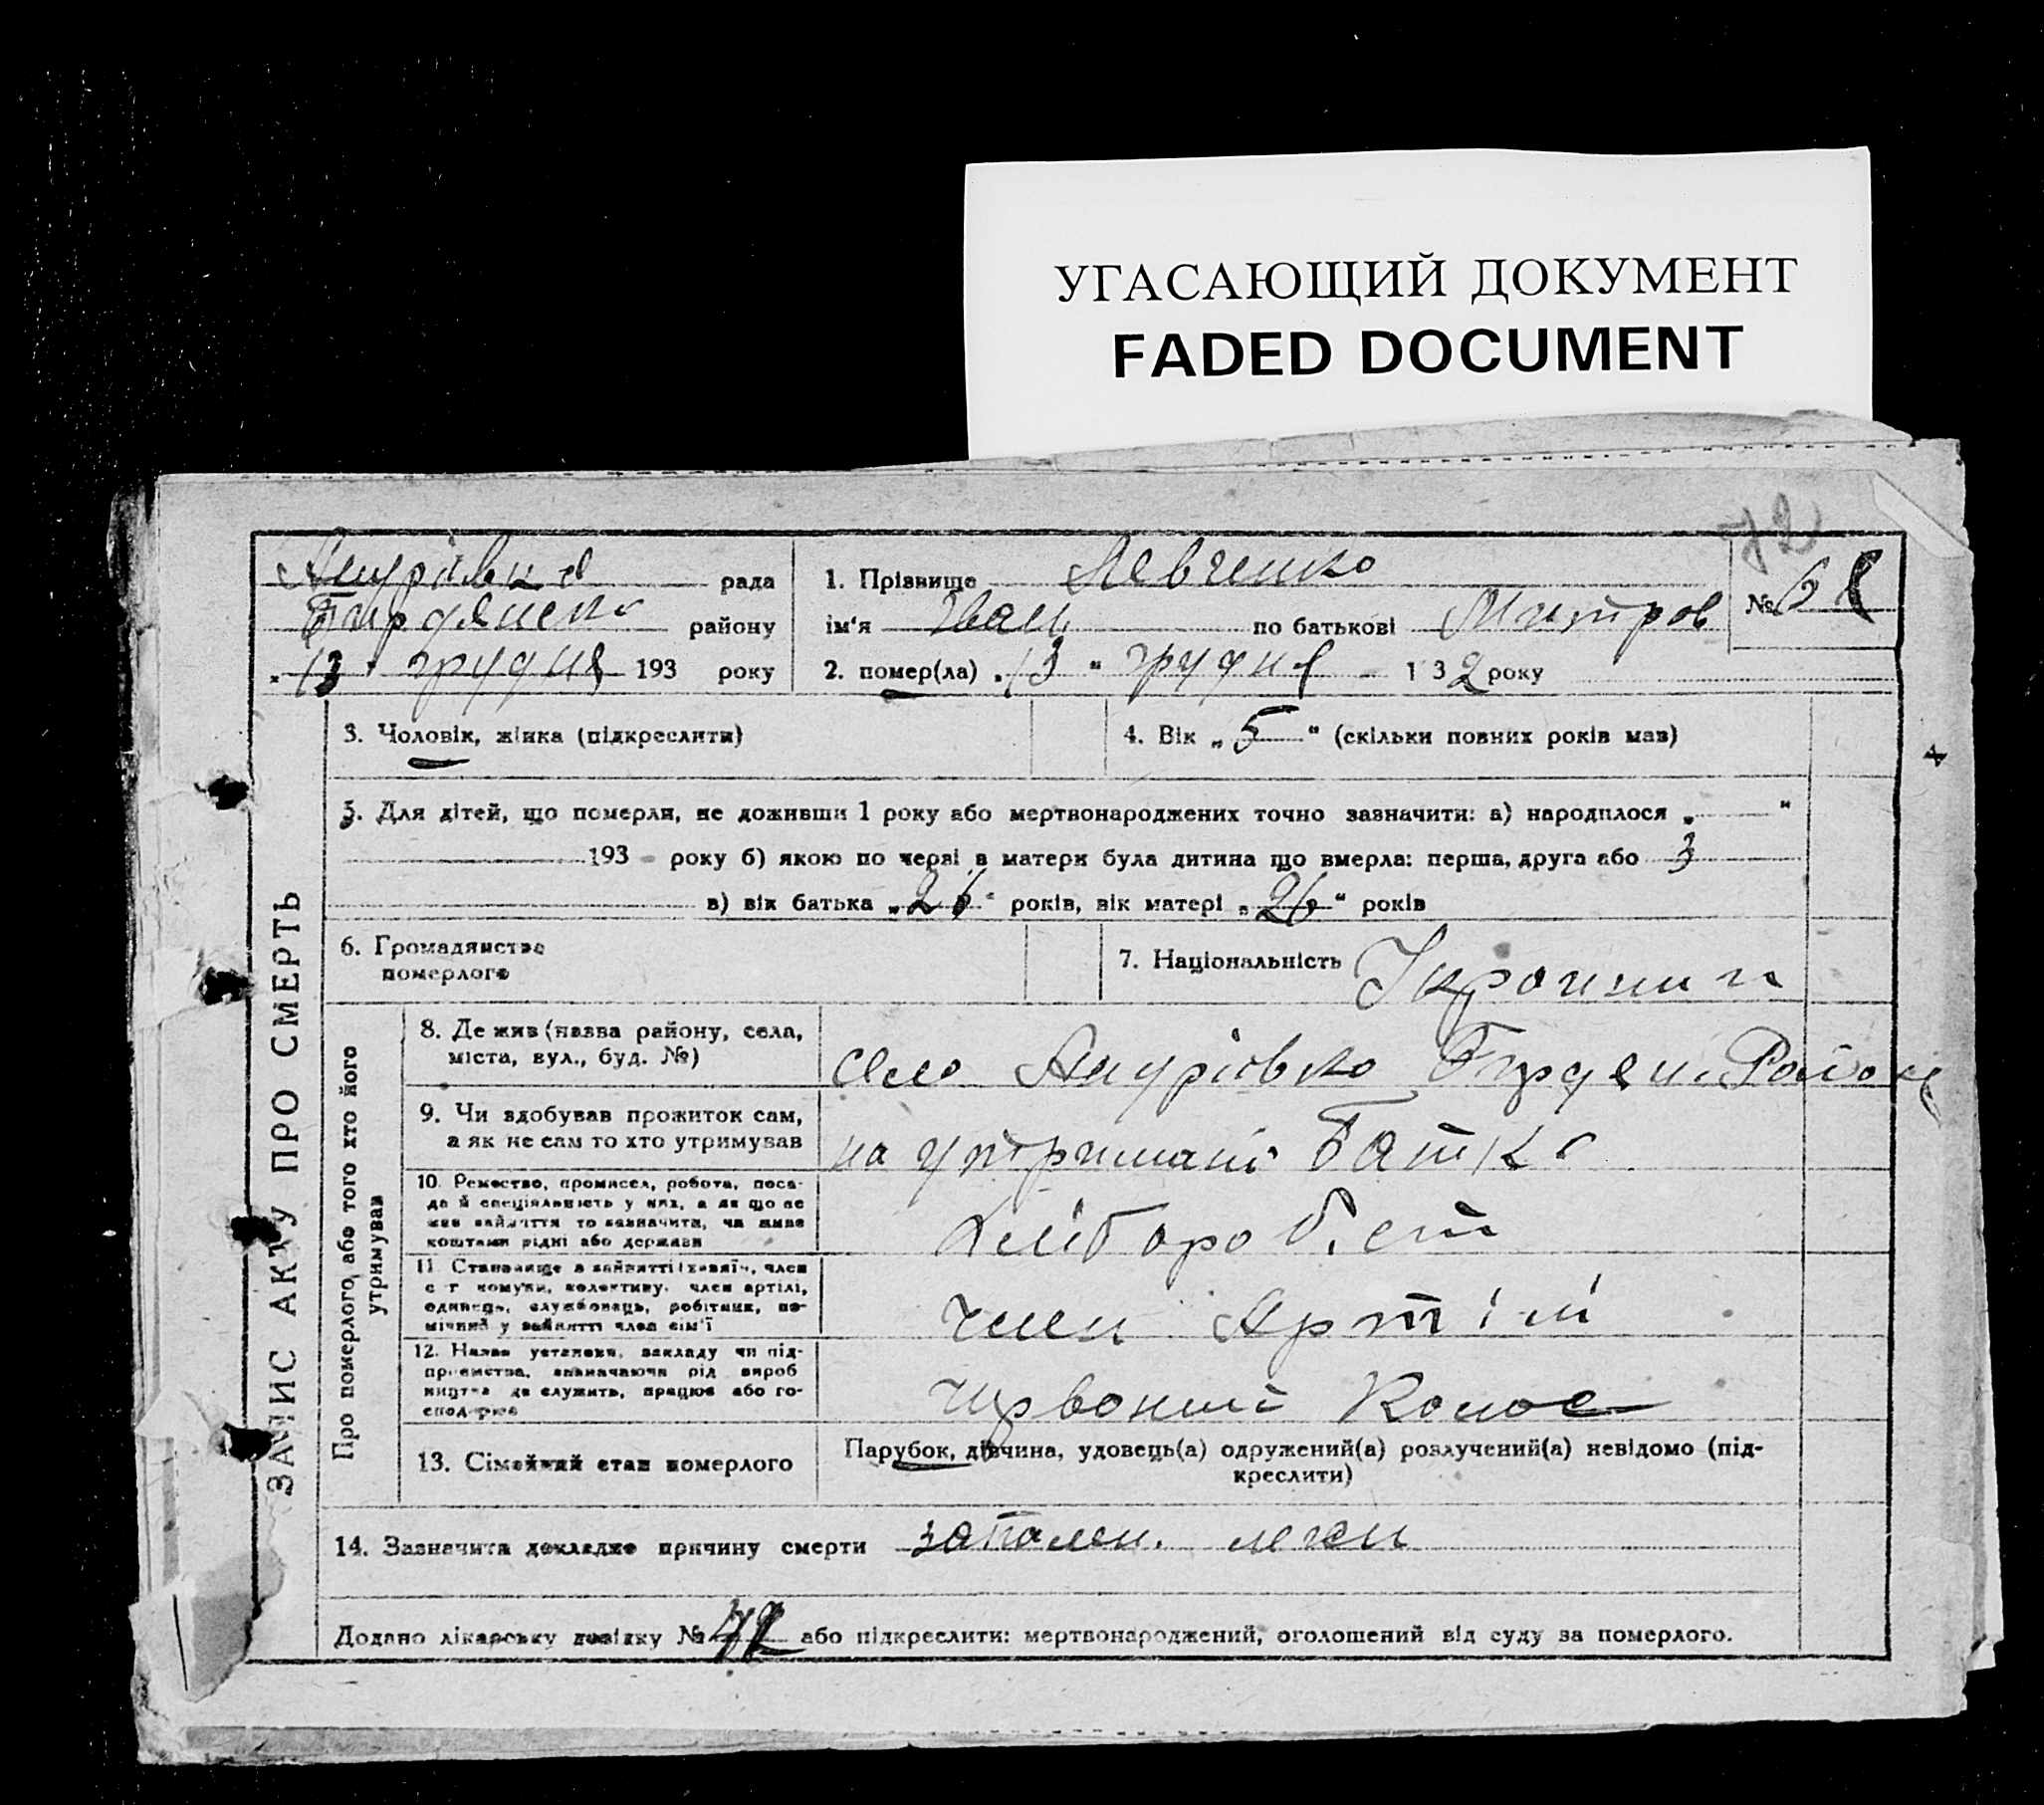 УГАСАЮЩИЙ ДОКУМЕНТ
FADED DOCUMENT
72
рада
району
"13" грудня 193 року
1. Прізвище Левченко
ім'я Іван по батькові Митров
№ 6
2. помер(ла) "13" грудня 1932 року
3. Чоловік, жінка (підкреслити)
4. Вік „5" (скільки повних років мав)
5. Для дітей, що померли, не доживши 1 року або мертвонароджених точно зазначити: а) народилося „ "
193 року б) якою по черзі в матери була дитина що вмерла: перша, друга або 3
в) вік батька „26" років, вік матері „26" років
6. Громадянство
померлого
7. Національність
ЗАПИС АКТУ ПРО СМЕРТЬ
Про померлого, або того хто його
утримував
8. Де жив (назва району, села,
міста, вул., буд. №)
село Район
9. Чи здобував прожиток сам,
а як не сам то хто утримував
на утримані Батька
10. Ремество, промисел, робота, поса-
да й спеціяльність у них, а як що не
мав зайняття то зазначити, чи живе
коштами рідні або держави
11. Становище в зайнятті (хазяїн, член
с-г комуни, колективу, член артілі,
одинець, службовець, робітник, по-
мічний у зайнятті член сім'ї
член Артілі
12. Назва установи, закладу чи під-
приємства, зазначаючи рід вироб
ництва де служить, працює або го-
сподарює
Червоний Колос
13. Сімейний стан померлого
Парубок, дівчина, удовець(а) одружений(а) розлучений(а) невідомо (під-
креслити)
14. Зазначити докладно причину смерти запален. леген
Додано лікарську довідку № або підкреслити: мертвонароджений, оголошений від суду за померлого.